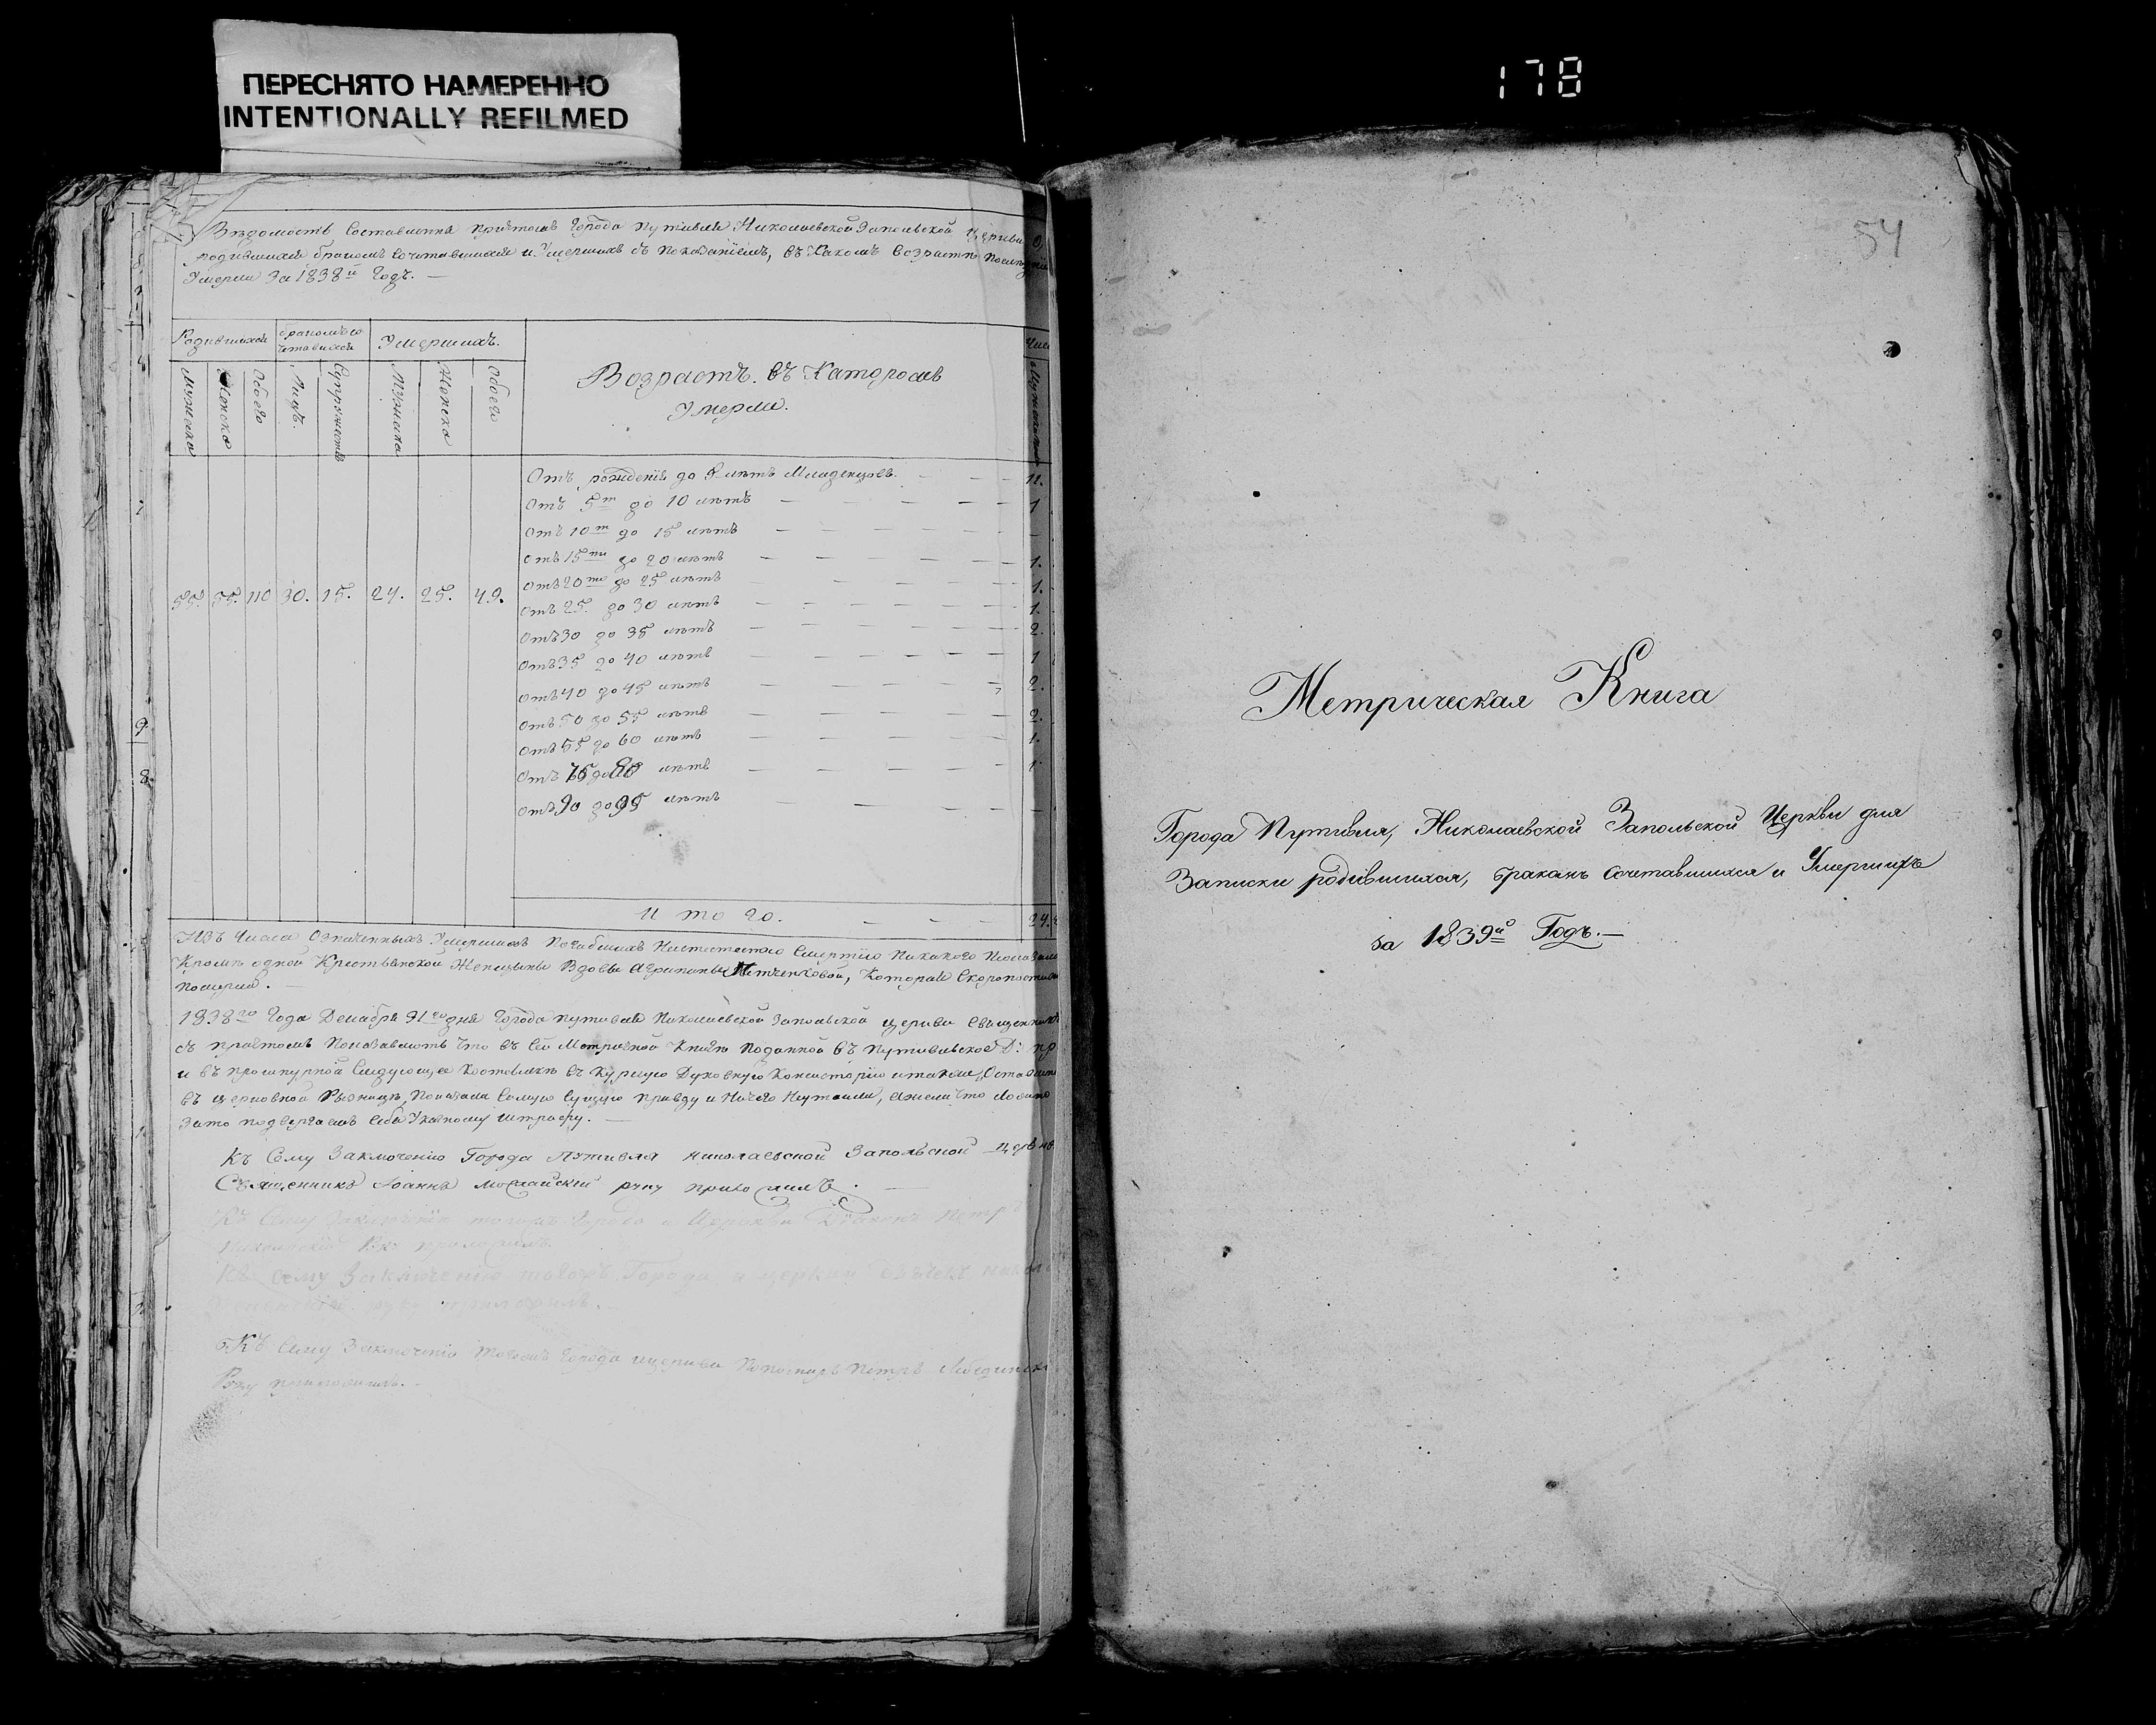 ПЕРЕСНЯТО НАМЕРЕННО
INTENTIONALLY REFILMED
178
54
Вѣдомость Составленна причтомъ Города Путивля Николаевской Запольской Церкви о
родившихся бракомъ Сочетавшихся и Умершихъ съ Показаніемъ, въ Какомъ Возрастѣ
Умерли За 1838й Годъ. —
Родившихся
бракомъ со
четавшихся
Умершихъ.
Возрастъ. въ Которомъ
Умерли.
Мужеска
Женска
Обоего
Лицъ.
Супружествъ
Мужеска
Женска
Обоего
55. 55. 110 30. 15. 24. 25. 49.
Отъ рожденія до 5 лѣтъ Младенцовъ. — — 12.
Отъ 5т до 10 лѣтъ — — — 1
Отъ 10т до 15 лѣтъ — — — —
Отъ 15ти до 20 лѣтъ — — — 1.
Отъ 20ти до 25 лѣтъ — — — 1.
Отъ 25. до 30 лѣтъ — — — 1.
Отъ 30 до 35 лѣтъ — — — 2.
Отъ 35 до 40 лѣтъ — — — 1
Отъ 40 до 45 лѣтъ — — — 2.
Отъ 50 до 55 лѣтъ — — — 2.
Отъ 55 до 60 лѣтъ — — — 1.
Отъ 75 до 80 лѣтъ — — — 1
Отъ 90 до 95 лѣтъ — — — —
И то го. — — — 24.
Изъ Числа Означенныхъ Умершихъ Погибшихъ Смертію Никакого
Кромѣ одной Крестьянской Женщины Вдовы Агрипины Которая
Померла. —
1838го Года Декабря 31го дня Города Путивля Николаевской Запольской церкви Священникъ
съ причтомъ Показываютъ Что въ Сей Метричной Книгѣ Поданной въ Путивльское Д:
и въ прошнурной Слѣдующее въ Курскую Духовную Консисторію также
въ церковной Ризницѣ, Показали Самую Сущую Правду и Ничего Неутаили, Ежели Что
Зато подвергаемъ Себя Указному Штрафу. —
Къ Сему Заключенію Города Путивля Николаевской Запольской
Священникъ Іоаннъ Можайскій руку приложилъ. —
Къ Сему Заключенію тогожъ Города и Церкви Діаконъ Петръ
руку приложилъ.
Къ сему Заключенію тогожъ Города и церкви
руку приложилъ. —
Къ Сему Заключенію Тогожъ Города и церкви Пономарь Петръ
Руку приложилъ. —
Метрическая Книга
Города Путивля, Николаевской Запольской Церкви для
Записки родившихся, бракомъ Сочетавшихся и Умершихъ
за 1839й Годъ. —